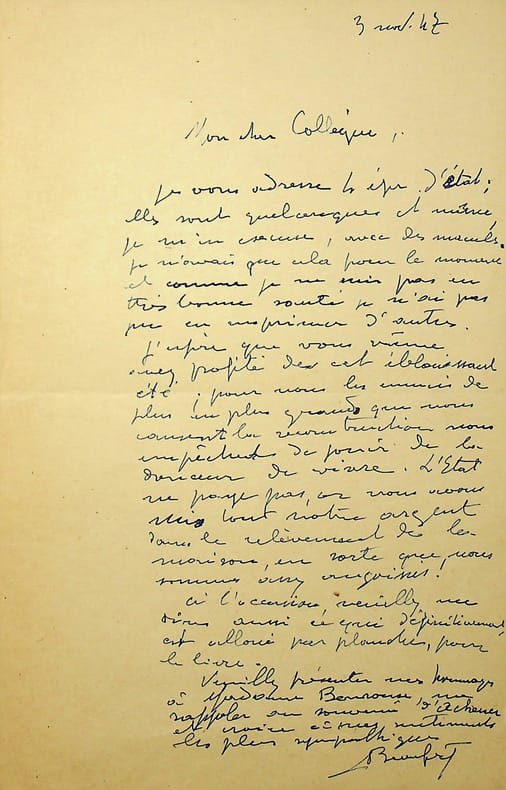 3 nov. 47
Mon cher Collègue,
Je vous adresse les épr. d'état ;
elles sont quelconques et même,
je m'en excuse, avec des macules.
Je n'avais que cela pour le moment
et comme je ne suis pas en
très bonne santé je n'ai pas
pu en imprimer d'autres.
J'espère que vous même
avez profité de cet éblouissant
été ; pour nous les ennuis de
plus en plus grands que nous
causent la reconstruction nous
empêchent de jouir de la
douceur de vivre. L'Etat
ne paye pas, or nous avons
mis tout notre argent
dans le relèvement de la
maison, en sorte que nous
sommes assez angoissés.
A l'occasion veuillez me
dire aussi ce qui définitivement
est alloué par planche, pour
le livre.
Veuillez présenter mes hommages
à Madame, me
rappeler au souvenir
et croire à mes sentiments
les plus sympathiques